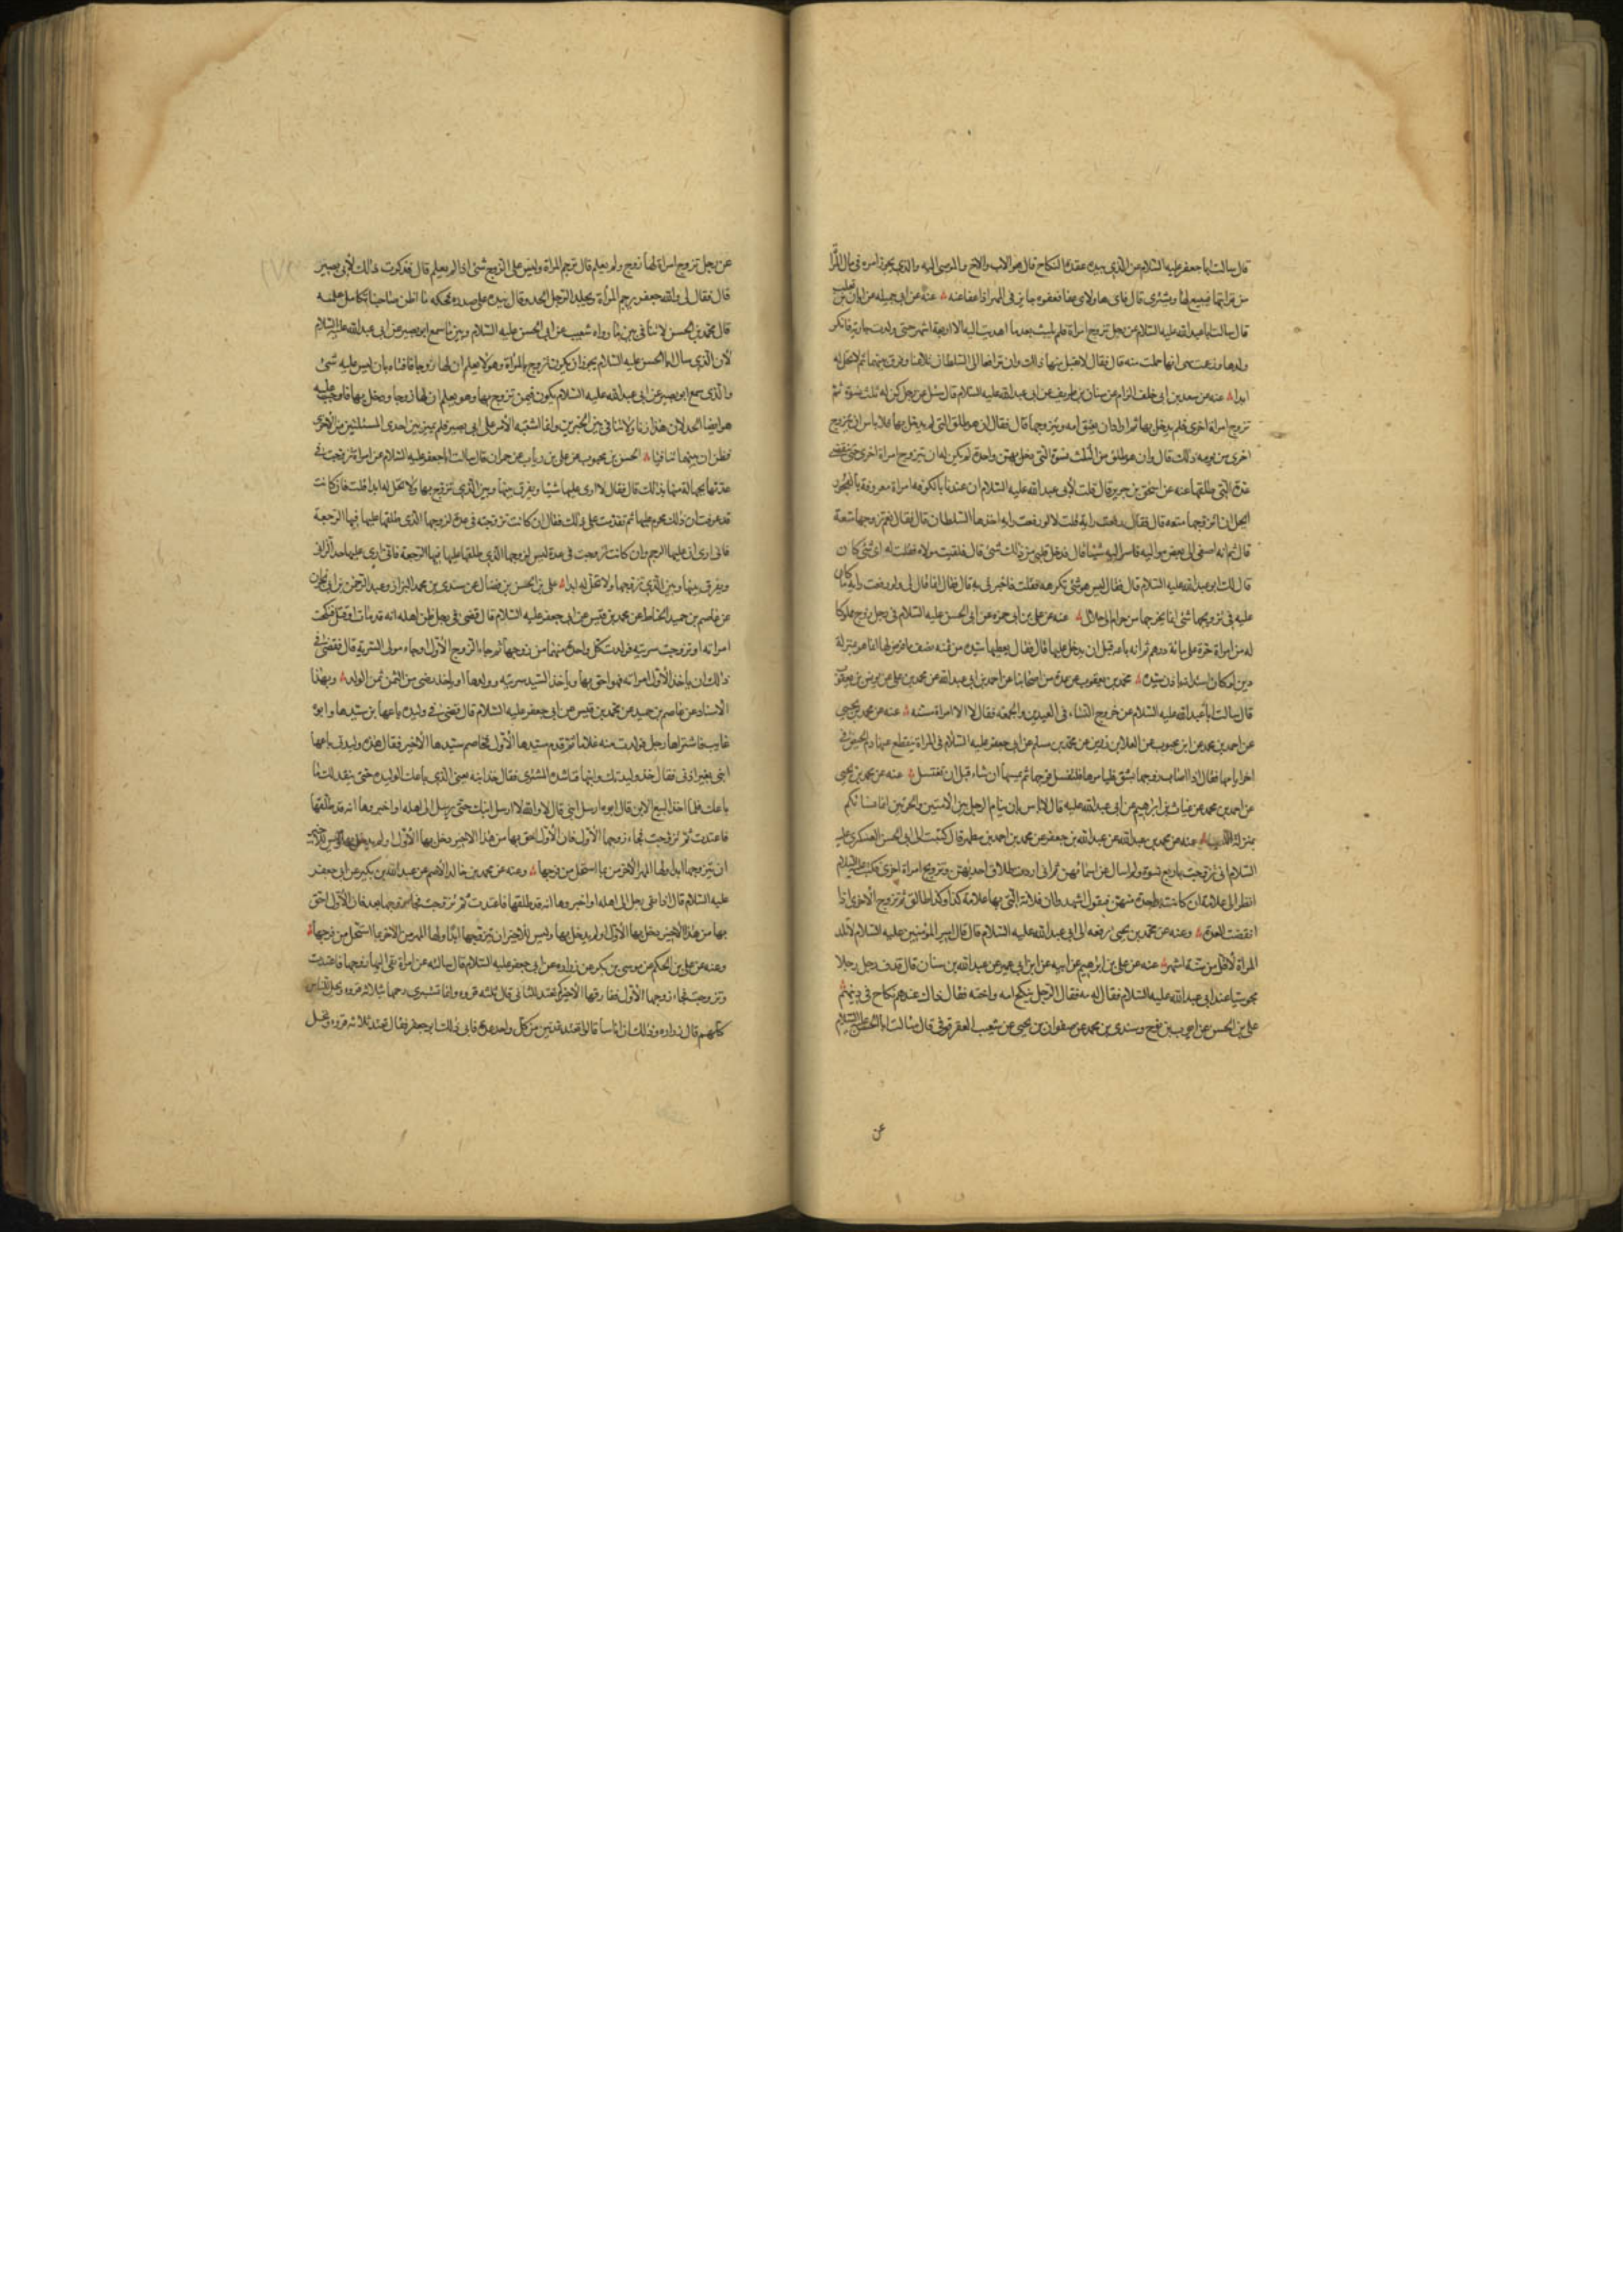 قال سالت ابا جعفر عليه السلام عن الذي بيده عقدة النكاح قال هو الاب والاخ والموصى اليه والذي يجوز امره في مال المراة
من قرابتها فيبيع لها ويشترى قال فاى هاولاى عفا فعفوه جايز فى المهر اذا عفا عنه عنه عن ابى جميله عن ابان بن تغلب
قال سالت ابا عبدالله عليه السلام عن رجل تزوج امراة فلم يلبث بعد ما اهديت اليه الا اربعة اشهر حتى ولدت جارية فانكر
ولدها وزعمت هى انها حملت منه قال فقال لا يقبل منها ذالك وان ترافعا الى السلطان تلاعنا وفرق بينهما ثم لا تحل له
ابدا عنه عن سعد بن ابى خلف الزام عن سنان بن طريف عن ابى عبدالله عليه السلام قال سئل عن رجل كن له ثلث نسوة ثم
تزوج امراة اخرى فلم يدخل بها ثم اراد ان يعتق امه ويتزوجها قال فقال ان هو طلق التى لم يدخل بها فلا باس ان يتزوج
اخرى من يومه ذلك قال وان هو طلق من الثلث نسوة التى دخل بهن واحدة لم يكن له ان يتزوج امراة اخرى حتى تنقضى
عدة التى طلقها عنه عن اسحق بن جرير قال قلت لابى عبدالله عليه السلام ان عندنا بالكوفه امراة معروفة بالفجور
ايحل ان اتزوجها متعه قال فقال رفعت راية قلت لا لو رفعت راية اخذها السلطان قال فقال نعم تزوجها متعة
قال ثم انه اصغى الى بعض مواليه فاسر اليه شيئا قال فدخل قلبى من ذالك شئ قال فلقيت مولاه فقلت له اى شئ كان
قال لك ابو عبدالله عليه السلام قال فقال ليس هو شئ تكرهه فقلت فاخبرنى به قال فقال انما قال لى ولو رفعت راية ما كان
عليه فى تزويجها شئ انما يخرجها من حرام الى حلال عنه عن على بن ابى حمزه عن ابى الحسن عليه السلام فى رجل زوج مملوكا
له من امراة حرة على مائة درهم ثم انه باعه قبل ان يدخل عليها قال فقال يعطيها سيده من ثمنه نصف ما فرض لها انما هو بمنزلة
دين لو كان استدانه باذن سيده محمد بن يعقوب عن عدة من اصحابنا عن احمد بن ابى عبدالله عن محمد بن على عن يونس بن يعقوب
قال سالت ابا عبدالله عليه السلام عن خروج النساء فى العيدين والجمعه فقال لا الا امراة مسنه عنه عن محمد بن يحيى
عن احمد بن محمد عن ابن محبوب عن العلا بن رزين عن محمد بن مسلم عن ابى جعفر عليه السلام فى المراة ينقطع عنها دم الحيض فى
اخر ايامها فقال اذا اصاب زوجها شبق فليامرها فلتغسل فرجها ثم يمسها ان شاء قبل ان تغتسل عنه عن محمد بن يحيى
عن احمد بن محمد عن غياث بن ابرهيم عن ابى عبدالله عليه قال لا باس بان ينام الرجل بين الامتين والحرتين انما نسائكم
بمنزلة اللعب عنه عن محمد بن عبدالله عن عبدالله بن جعفر عن محمد بن احمد بن مطهر قال كتبت الى ابى الحسن العسكرى عليه
السلام انى تزوجت باربع نسوة ولم اسال عن اسمائهن ثم انى اردت طلاق احديهن وتزويج امراة اخرى فكتب عليه السلام
انظر الى علامة ان كانت بواحدة منهن فيقول اشهدوا ان فلانة التى بها علامة كذا وكذا طالق ثم تزوج الاخرى اذا
انقضت العدة وعنه عن محمد بن يحيى رفعه الى ابى عبدالله عليه السلام قال قال امير المؤمنين عليه السلام لا تلد
المراة لاقل من ستة اشهر عنه عن على بن ابرهيم عن ابيه عن ابن ابى عمير عن عبدالله بن سنان قال قذف رجل رجلا
مجوسيا عند ابى عبدالله عليه السلام فقال له مه فقال الرجل ينكح امه واخته فقال ذاك عندهم نكاح فى دينهم
على بن الحسن عن ايوب بن نوح وسندى بن محمد عن صفوان بن يحيى عن شعيب العقرقوفى قال سالت ابا الحسن عليه السلام
عن
عن رجل تزوج امراة لها زوج ولم يعلم قال ترجم المراة وليس على الزوج شئ اذا لم يعلم قال فذكرت ذالك لابى بصير
قال فقال لى والله جعفر يرجم المراة ويجلد الرجل الحد وقال بيده على صدره يحكه ما اظن صاحبنا تكامل علمه
قال محمد بن الحسن لا تنافى بين ما رواه شعيب عن ابى الحسن عليه السلام وبين ما سمع ابو بصير عن ابى عبدالله عليه السلام
لان الذى سال ابا الحسن عليه السلام يجوز ان يكون تزوج بالمراة وهو لا يعلم ان لها زوجا فافتاه بان ليس عليه شئ
والذى سمع ابو بصير عن ابى عبدالله عليه السلام يكون فيمن تزوج بها وهو يعلم ان لها زوجا ودخل بها فاوجب عليه
هو ايضا الحد لان هذا زنا ولا تنافى بين الخبرين وانما اشتبه الامر على ابى بصير فلم يميز بين احدى المسئلتين من الاخرى
فظن ان بينهما تنافيا الحسن بن محبوب عن على بن رياب عن حمران قال سالت ابا جعفر عليه السلام عن امراة تزوجت فى
عدتها بجهالة منها بذالك قال فقال لا ارى عليها شيئا ويفرق بينها وبين الذى تزوج بها ولا تحل له ابدا قلت فان كانت
قد عرفت ان ذلك محرم عليها ثم تقدمت على ذلك فقال ان كانت تزوجته فى عدة لزوجها الذى طلقها عليها فيها الرجعة
فانى ارى ان عليها الرجم وان كانت تزوجت فى عدة ليس لزوجها الذى طلقها عليها فيها الرجعة فانى ارى عليها حد الزانى
ويفرق بينها وبين الذى تزوجها ولا تحل له ابدا على بن الحسن بن فضال عن سندى بن محمد البزاز وعبد الرحمن بن ابى نجران
عن عاصم بن حميد الحناط عن محمد بن قيس عن ابى جعفر عليه السلام قال قضى فى رجل ظن اهله انه قد مات او قتل فنكحت
امراته او تزوجت سريته فولدت كل واحدة منهما من زوجها ثم جاء الزوج الاول او جاء مولى السرية قال فقضى فى
ذلك ان ياخذ الاول امراته فهو احق بها وياخذ السيد سريته وولدها او ياخذ رضى من الثمن ثمن الولد وبهذا
الاسناد عن عاصم بن حميد عن محمد بن قيس عن ابى جعفر عليه السلام قال قضى فى وليدة باعها ابن سيدها وابوه
غايب فاشتراها رجل فولدت منه غلاما ثم قدم سيدها الاول فخاصم سيدها الاخير فقال هذه وليدتى باعها
ابنى بغير اذنى فقال خذ وليدتك وابنها فناشده المشترى فقال خذ ابنه يعنى الذى باعك الوليدة حتى ينقد لك ما
باعك فلما اخذ البيع الابن قال ابوه ارسل ابنى قال لا والله لا ارسل ابنك حتى يرسل الى اهله او اخبروها انه قد طلقها
فاعتدت ثم تزوجت فجاء زوجها الاول فان الاول احق بها من هذا الاخير دخل بها الاول او لم يدخل بها وليس للاخير
ان يتزوجها ابدا ولها المهر الاخر من بما استحل من فرجها وعنه عن محمد بن خالد الاصم عن عبدالله بن بكير عن ابى جعفر
عليه السلام قال اذا نعى رجل الى اهله او اخبروها انه قد طلقها فاعتدت ثم تزوجت فجاء زوجها بعد فان الاول احق
بها من هذا الاخير دخل بها الاول او لم يدخل بها وليس للاخير ان يتزوجها ابدا ولها المهر من الاخر بما استحل من فرجها
وعنه عن على بن الحكم عن موسى بن بكر عن زراره عن ابى جعفر عليه السلام قال سالته عن امراة نعى اليها زوجها فاعتدت
وتزوجت فجاء زوجها الاول ففارقها الاخير كم تعتد للثانى قال ثلثه قروء وانما تستبرى رحمها بثلاثه قروء وتحل للناس
كلهم قال زراره وذلك ان اناسا قالوا تعتد عدتين من كل واحد عدة فابى ذلك ابو جعفر فقال تعتد ثلاثه قروء وتحل